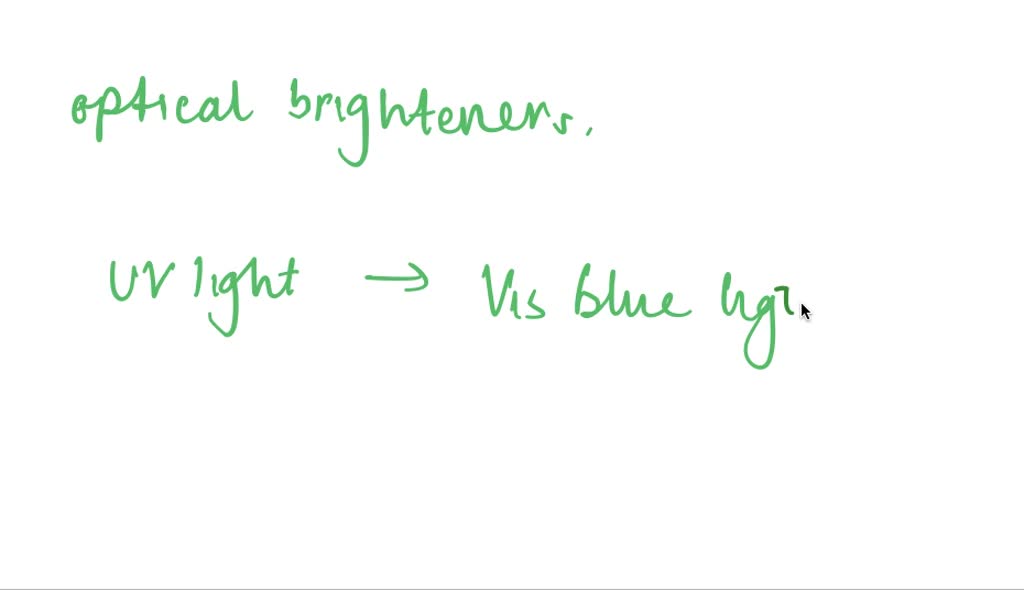 optical brighteners.
UV light → Vis blue lig